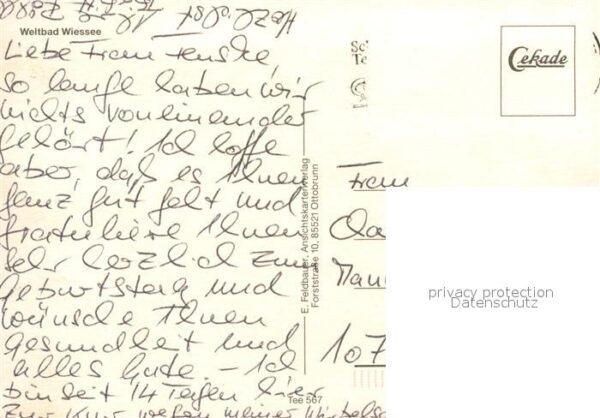 Weltbad Wiessee
Liebe Frau Fenske,
so lange haben wir
nichts voneinander
gehört! Ich hoffe
aber, daß es Ihnen
ganz gut geht und
gratuliere Ihnen
sehr herzlich zum
Geburtstag und
wünsche Ihnen
Gesundheit und
alles Gute. – Ich
bin seit 14 Tagen hier
zur Kur wegen meiner Wirbels
E. Feldbauer, Ansichtskartenverlag
Forststraße 10, 85521 Ottobrunn
Tee 567
Cekade
Frau
107
privacy protection
Datenschutz